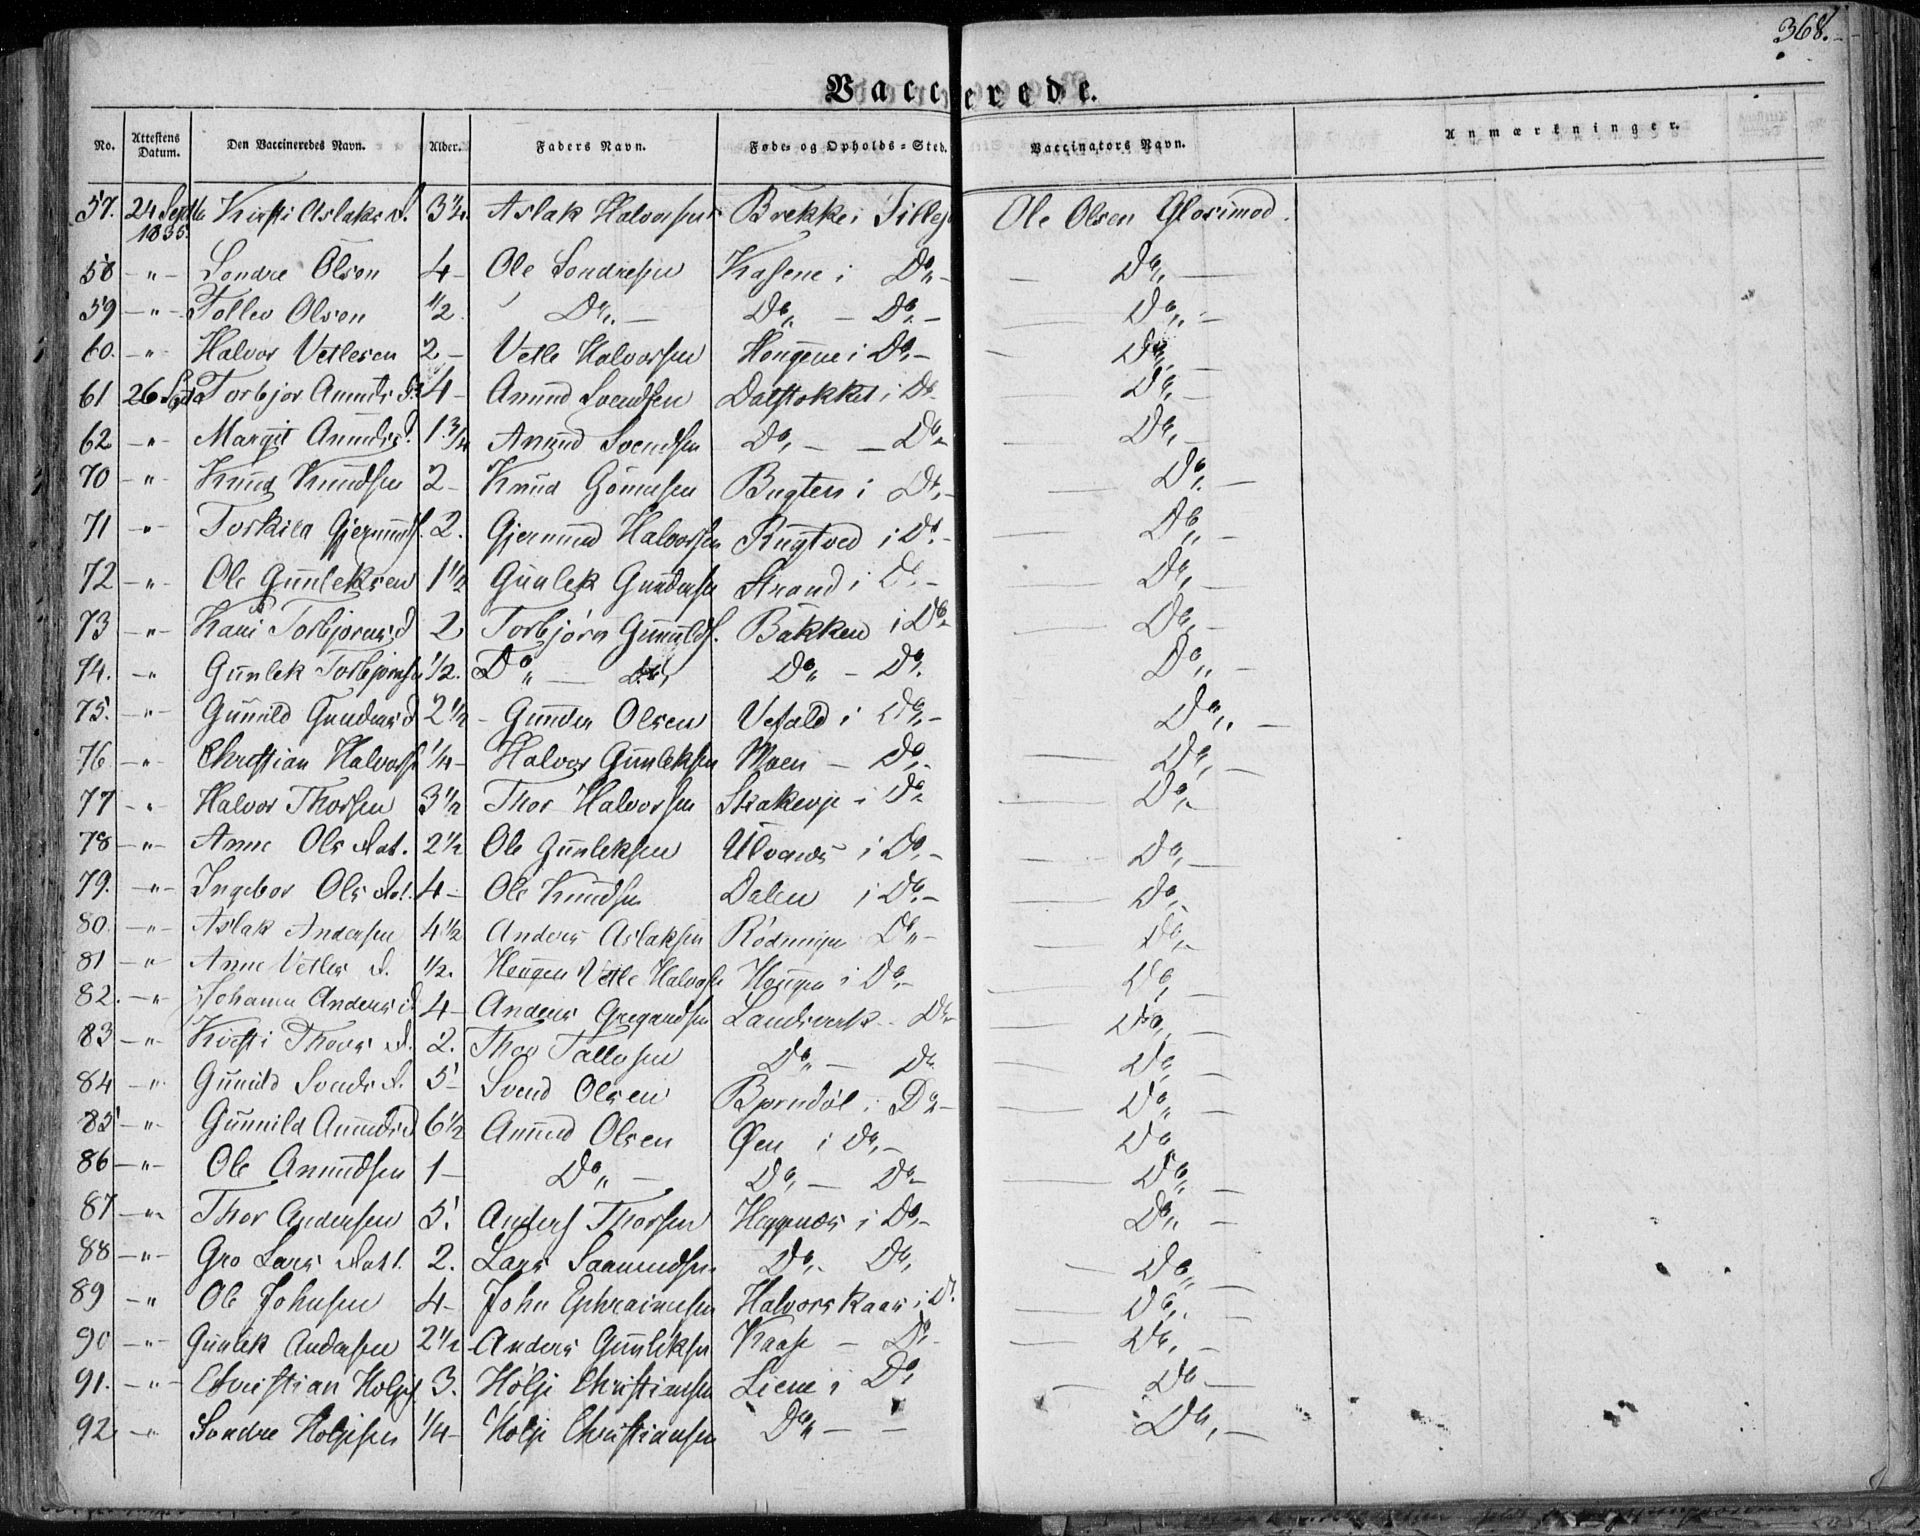 368.
Vaccinerede.
No. Attestens Datum. Den Vaccineredes Navn. Alder. Faders Navn. Føde- og Opholds-Sted. Vaccinators Navn. Anmærkninger.
57. 24 Septb 1855. Kirsti Aslaks D. 3½. Aslak Halvorsen Brekke i Ole Olsen
58 -"- Sondre Olsen 4- Ole Sondresen Kasene i Do - Do
59 -"- Tollev Olsen ½ Do Do - Do - Do
60. -"- Halvor Vetlesen 2- Vetle Halvorsen Hougene i Do - Do
61 26 Sept Torbjør Amunds D. 4- Amund Svendsen Dalstokket i Do - Do
62 -"- Margit Amunds D. 1¾ Amund Svendsen Do - - Do Do
70 -"- Knud Knudsen 2- Knud Bugten i Do - Do
71 " Torkild Gjermunds. 2. Gjermund Halvorsen Rugtved i Do - Do
72 -"- Ole Gunleksen 1½ Gunlek Gundersen Strand i Do - Do
73 -"- Kari Torbjørns D 2 Torbjørn Gunulds. Bakken i Do Do
74. -"- Gunlek Torbjørnsen ½. Do - Do Do - Do. Do
75. -"- Gunild Gunders D 2½ - Gunder Olsen Vefald i Do - Do
76 -"- Christian Halvorsen ¼- Halvor Gunleksen Moen - Do - Do
77 -"- Halvor Thorsen 3½ Thor Halvorsen i Do Do
78 -"- Anne Ols Dat. 2½ Ole Gunleksen Ulvenes i Do - Do
79. -"- Ingebor Ols Dat. 4- Ole Knudsen Dalen i Do - Do
80. -"- Aslak Andersen 4½ Anders Aslaksen Do - Do
81 -"- Anne Vetles D. ½. Hougen Vetle Halvorsen Hougen i Do - Do
82. -"- Johanne Anders D 4- Anders Landsverk - Do Do
83 -"- Kirsti Thors D. 2. Thor Tallefsen Do - Do Do
84 -"- Gunild Svends D. 5- Svend Olsen Bjørndøl i Do - Do
85 -"- Gunnild Amunds D 6½ Amund Olsen Øen i Do - Do
86 -"- Ole Amundsen 1- Do - Do - Do Do
87 -"- Thor Andersen 5. Anders Thorsen Heggenes i Do - Do
88 -"- Gro Lars Datt. 2. Lars Saamundsen Do - Do Do
89 -"- Ole Johnsen 4- John Ephraimsen Halvorskaas i Do. Do
90 -"- Gunlek Andersen 2½ Anders Gunleksen Kaase - Do - Do
91. -"- Christian Holjes. 3. Holje Christiansen Liene i Do Do
92. -"- Sondre Holjesen ¼- Holje Christiansen Do - - Do